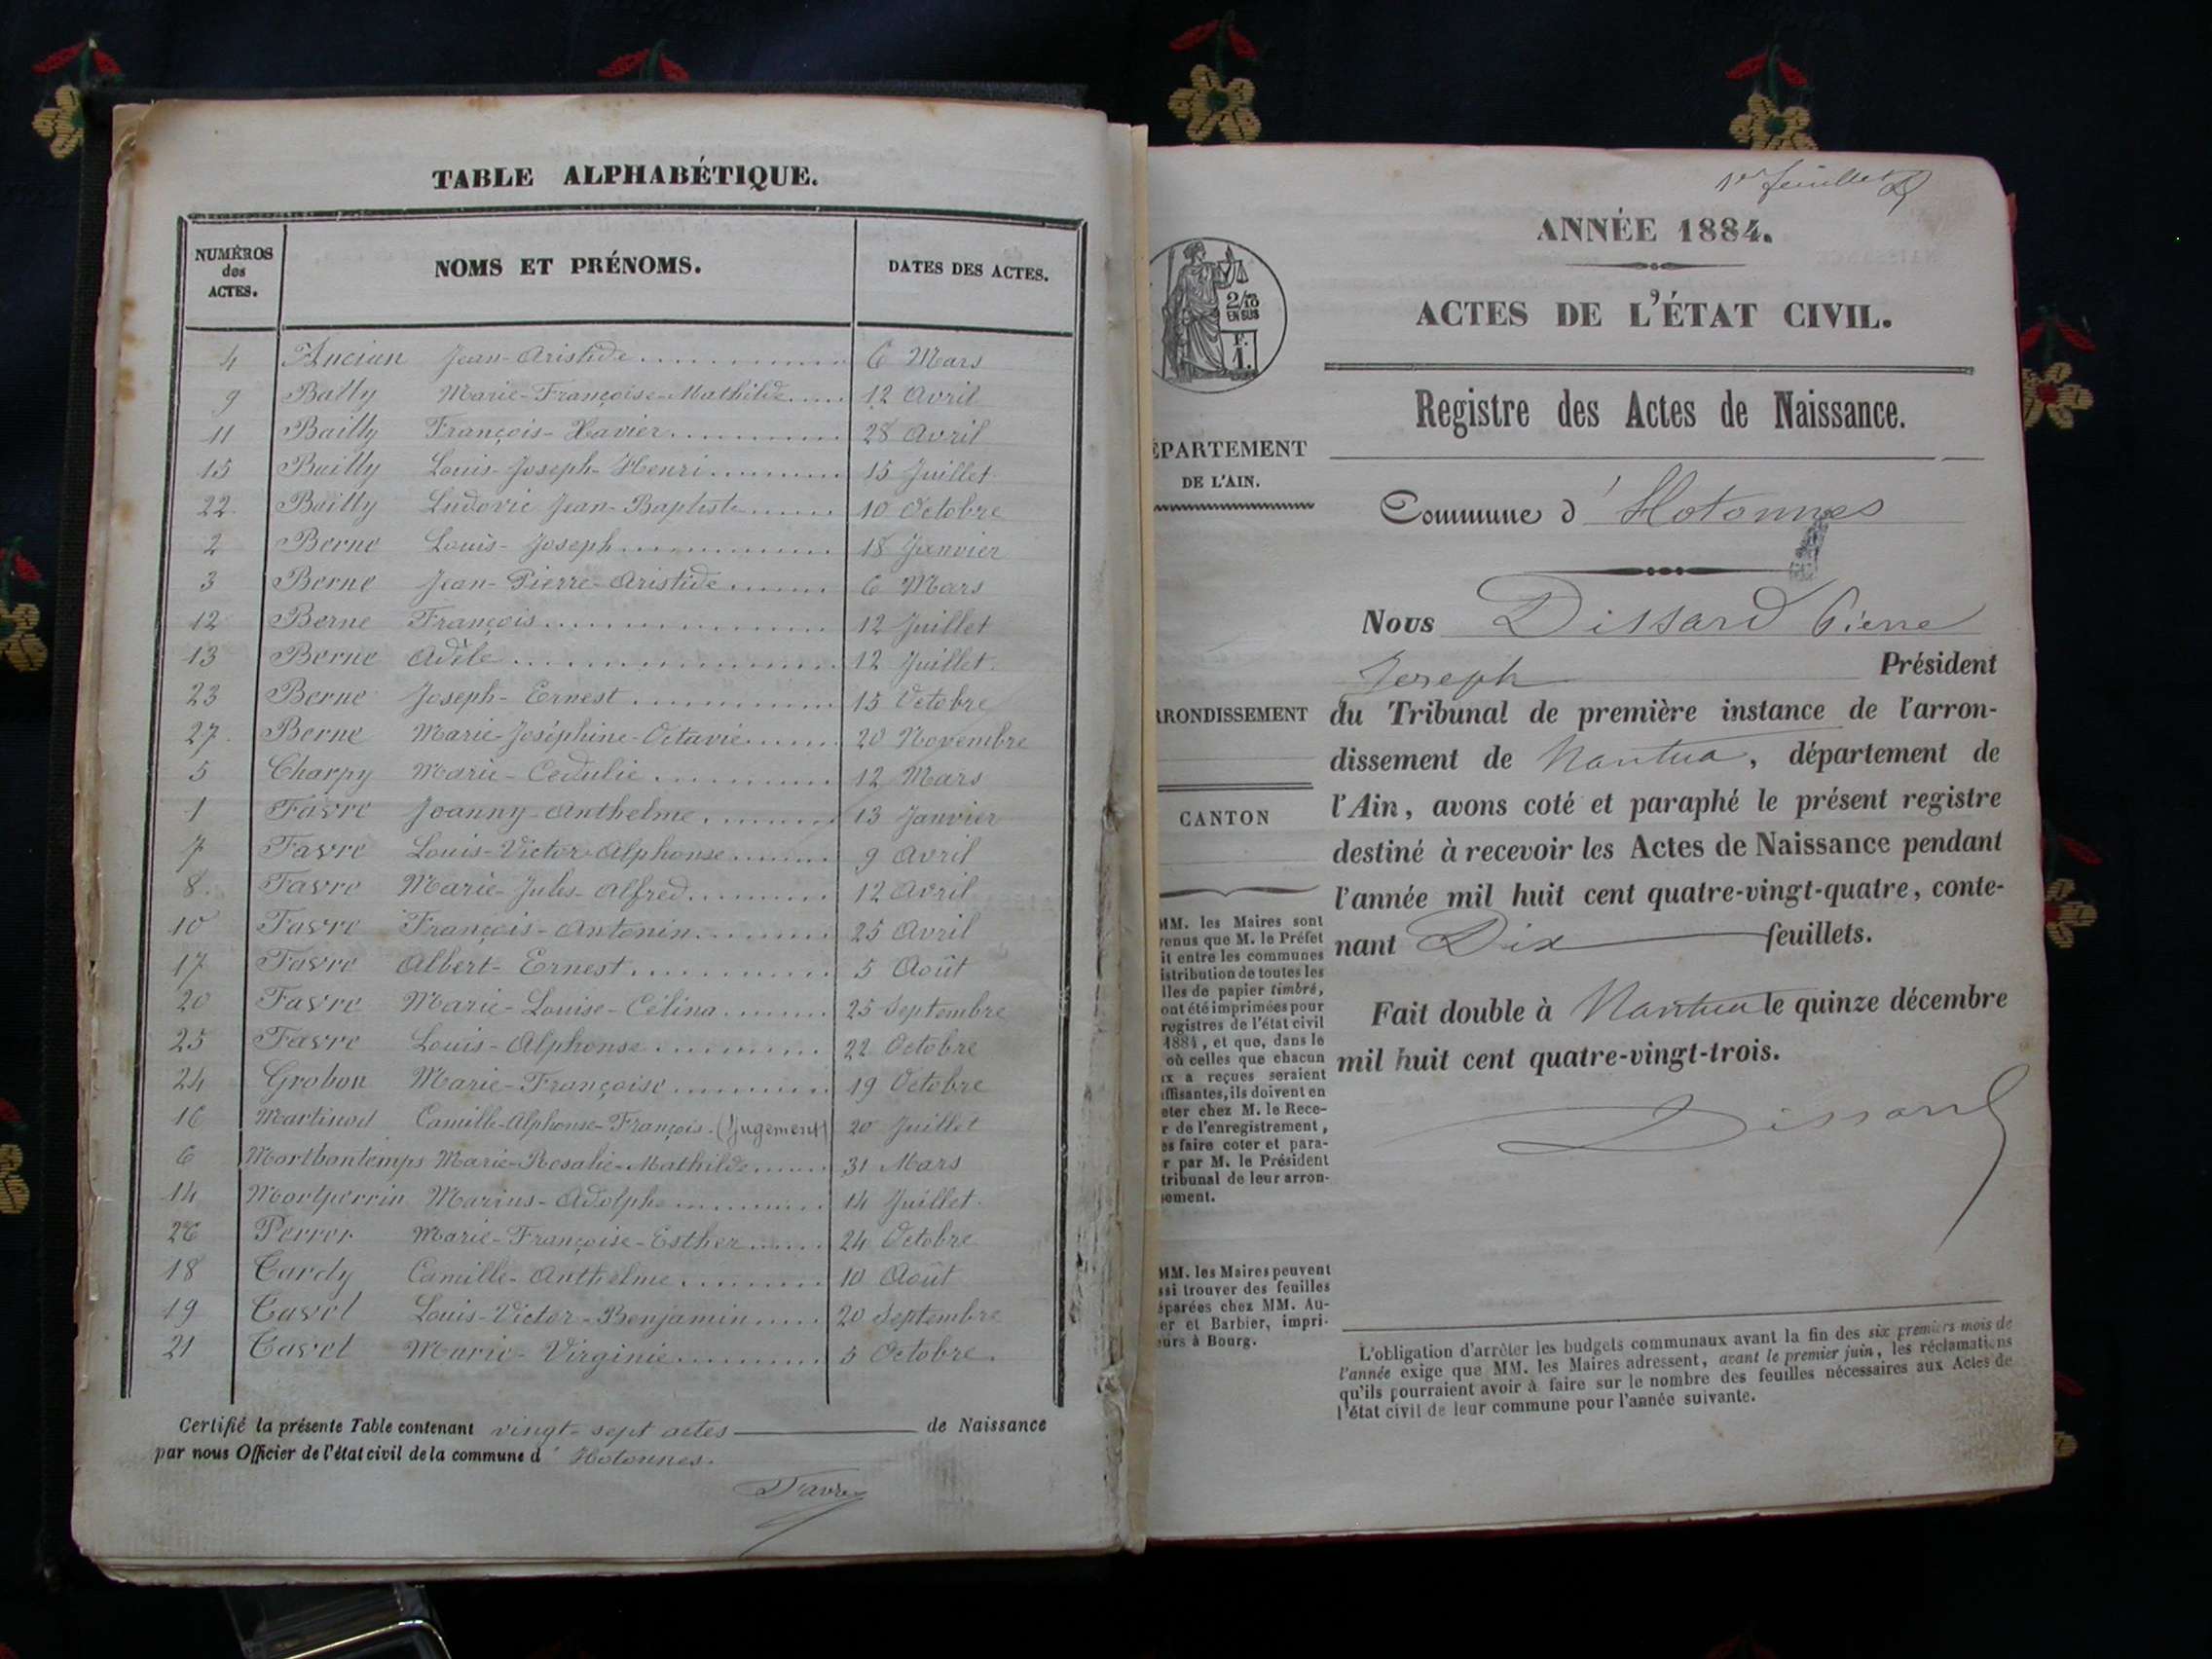 TABLE ALPHABÉTIQUE.
NUMÉROS des ACTES. NOMS ET PRÉNOMS. DATES DES ACTES.
4 Ancian Jean-Aristide 6 Mars
9 Bailly Marie-Françoise-Mathilde 12 Avril
11 Bailly François-Xavier 28 Avril
15 Bailly Louis-Joseph-Henri 15 Juillet
22 Bailly Ludovic Jean-Baptiste 10 Octobre
2 Berne Louis-Joseph 18 Janvier
3 Berne Jean-Pierre-Aristide 6 Mars
12 Berne François 12 Juillet
13 Berne Adèle 12 Juillet.
23 Berne Joseph-Ernest 15 Octobre
27 Berne Marie-Joséphine-Octavie 20 Novembre
5 Charpy Marie-Cedulie 12 Mars
1 Favre Joanny-Anthelme 13 Janvier
7 Favre Louis-Victor-Alphonse 9 Avril
8 Favre Marie-Jules-Alfred 12 Avril
10 Favre François-Antonin 25 Avril
17 Favre Albert-Ernest 5 Août
20 Favre Marie-Louise-Célina 25 Septembre
25 Favre Louis-Alphonse 22 Octobre
24 Grobon Marie-Françoise 19 Octobre
16 Martinod Camille-Alphonse-François (Jugement) 20 Juillet
6 Mortbontemps Marie-Rosalie-Mathilde 31 Mars
14 Marius-Adolphe 14 Juillet
26 Marie-Françoise-Esther 24 Octobre
18 Tardy Camille-Anthelme 10 Août
19 Tavel Louis-Victor-Benjamin 20 Septembre
21 Tavel Marie-Virginie 5 Octobre.
Certifié la présente Table contenant vingt-sept actes de Naissance
par nous Officier de l'état civil de la commune d' Hotonnes.
Favre
1er feuillet
ANNÉE 1884.
ACTES DE L'ÉTAT CIVIL.
2/10 EN SUS
F. 1.
Registre des Actes de Naissance.
ÉPARTEMENT
DE L'AIN.
Commune d' Hotonnes
Nous Dissard Pierre
Joseph Président
RRONDISSEMENT
du Tribunal de première instance de l'arron-
dissement de Nantua, département de
l'Ain, avons coté et paraphé le présent registre
CANTON
destiné à recevoir les Actes de Naissance pendant
l'année mil huit cent quatre-vingt-quatre, conte-
nant Dix feuillets.
Fait double à Nantua le quinze décembre
mil huit cent quatre-vingt-trois.
Dissard
MM. les Maires sont
enus que M. le Préfet
it entre les communes
istribution de toutes les
lles de papier timbré,
ont été imprimées pour
registres de l'état civil
1884, et que, dans le
où celles que chacun
x a reçues seraient
ffisantes, ils doivent en
eter chez M. le Rece-
r de l'enregistrement,
es faire coter et para-
r par M. le Président
tribunal de leur arron-
ement.
MM. les Maires peuvent
ssi trouver des feuilles
éparées chez MM. Au-
er et Barbier, impri-
eurs à Bourg.
L'obligation d'arrêter les budgets communaux avant la fin des six premiers mois de
l'année exige que MM. les Maires adressent, avant le premier juin, les réclamations
qu'ils pourraient avoir à faire sur le nombre des feuilles nécessaires aux Actes de
l'état civil de leur commune pour l'année suivante.